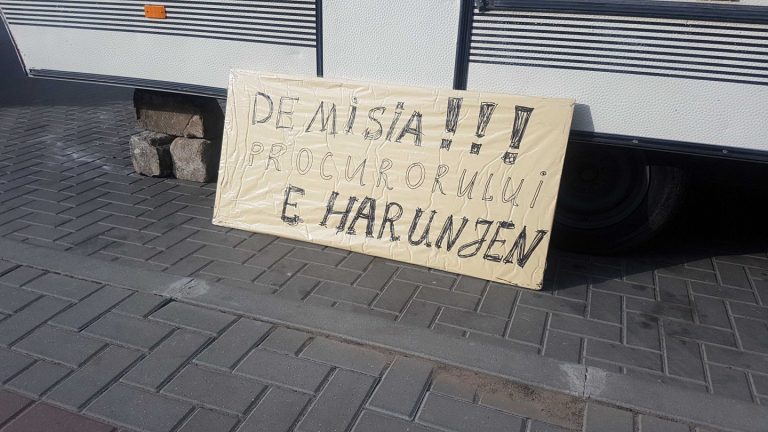 DEMISIA!!!
PROCURORULUI
E HARUNJEN